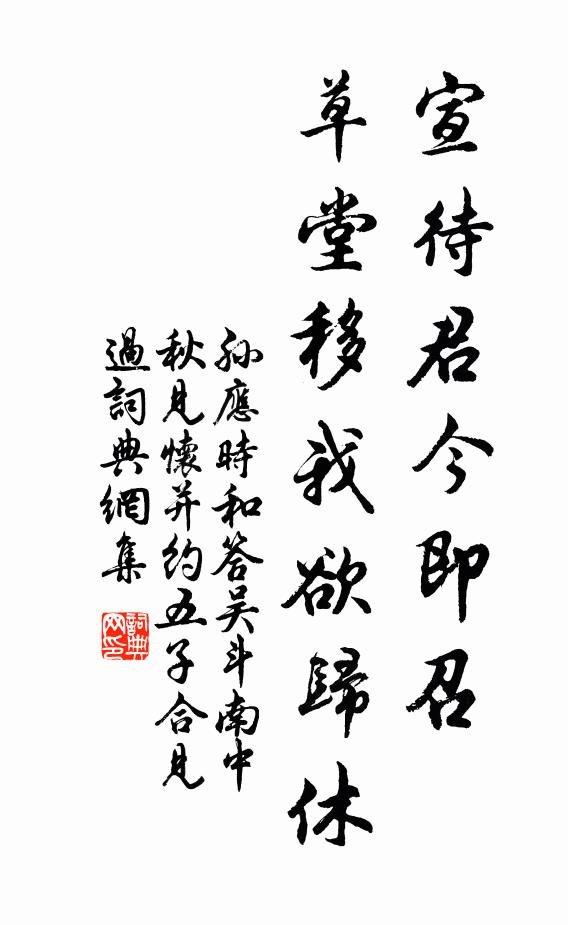 宣待君今即召
草堂移我欲歸休
孫應時和答吴斗南中
秋見懷并約五子合見
過詞典網集
詞典網印